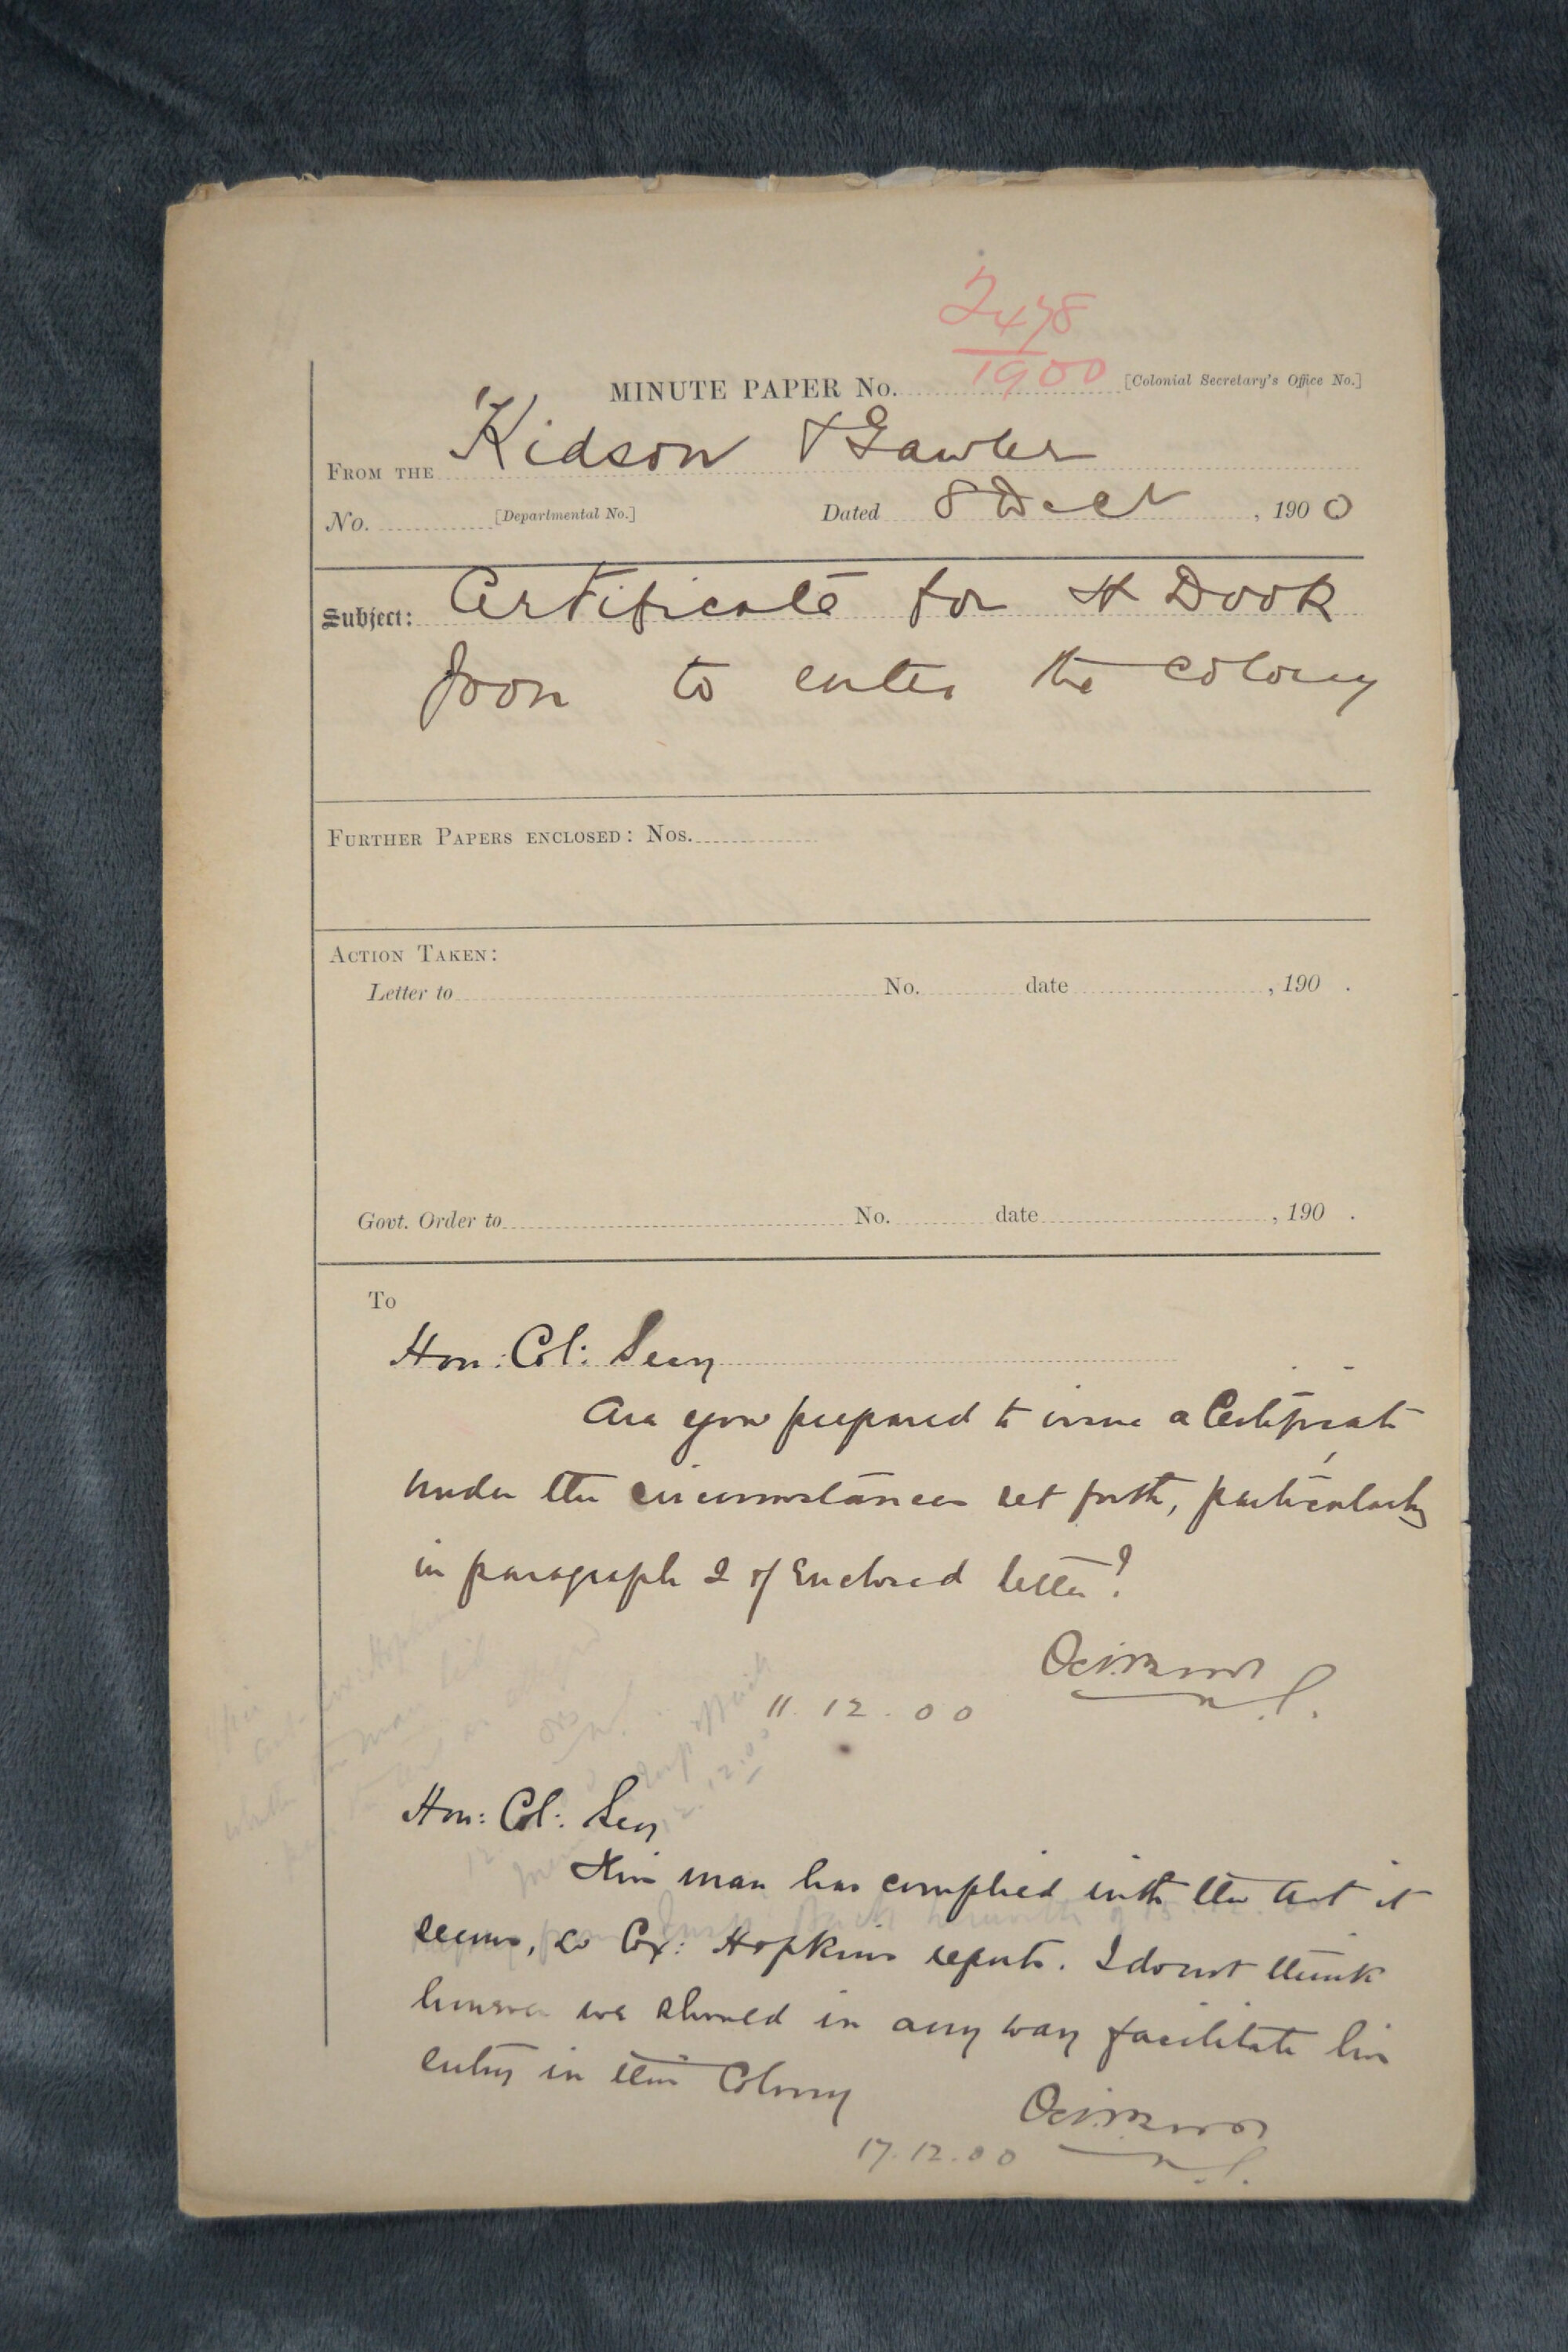 2478
1900
MINUTE PAPER No. [Colonial Secretary's Office No.]
FROM THE Kidson & Gawler
No. [Departmental No.] Dated 8 Decr, 1900
Subject: Certificate for H Dook
Joon to enter the colony
FURTHER PAPERS ENCLOSED: Nos.
ACTION TAKEN:
Letter to No. date , 190 .
Govt. Order to No. date , 190 .
To
Hon: Col: Secy
Are you prepared to issue a Certificate
under the circumstances set forth, particularly
in paragraph 2 of Enclosed letter?
11.12.00
Hon: Col: Secy
This man has complied with the Act it
seems, so Cx: Hopkins reports. I do not think
however we should in any way facilitate his
entry in this Colony
17.12.00